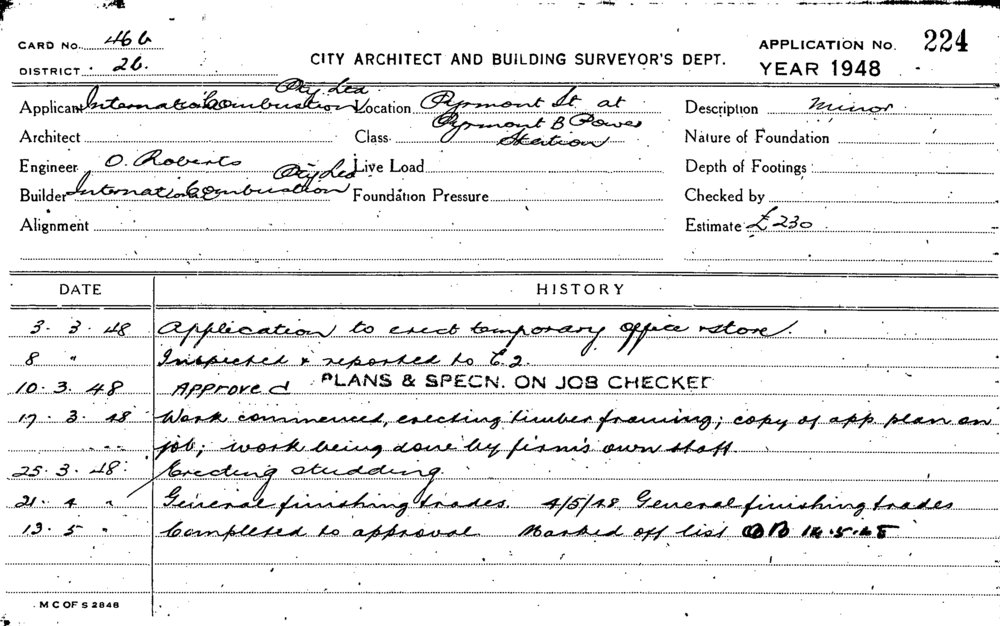 CARD No. 466
DISTRICT. 26.
CITY ARCHITECT AND BUILDING SURVEYOR'S DEPT.
APPLICATION No. 224
YEAR 1948
Applicant International Combustion Pty Ltd.
Location Pyrmont St. at Pyrmont B Power Station
Description Minor
Architect
Class
Nature of Foundation
Engineer O. Roberts
Live Load
Depth of Footings
Builder International Combustion Pty Ltd
Foundation Pressure
Checked by
Alignment
Estimate £230
DATE HISTORY
3. 3. 48 Application to erect temporary office & store.
8 " Inspected & reported to C.2.
10. 3. 48 Approved PLANS & SPECN. ON JOB CHECKED
17. 3. 48 Work commenced, erecting timber framing; copy of app plan on
job; work being done by firm's own staff.
25. 3. 48. Erecting studding.
21. 4 " General finishing trades. 4/5/48 General finishing trades
13. 5 " Completed to approval. Marked off list OB 14.5.48
M C OF S 2848